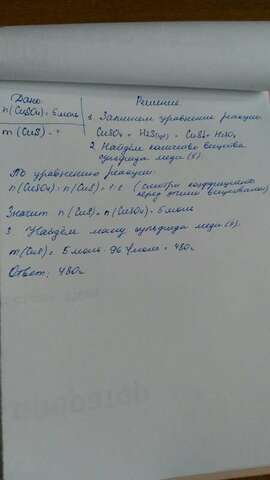 Дано:
n(CuSO4) = 5 моль
m(CuS) - ?
Решение
1. Запишем уравнение реакции:
CuSO4 + H2S(р) = CuS↓ + H2SO4
2. Найдём количество вещества
сульфида меди (II).
По уравнению реакции:
n(CuSO4) : n(CuS) = 1:1 (смотри коэффициенты
перед этими веществами)
Значит n(CuS) = n(CuSO4) = 5 моль
3. Найдём массу сульфида меди (II).
m(CuS) = 5 моль · 96 г/моль = 480г
Ответ: 480г